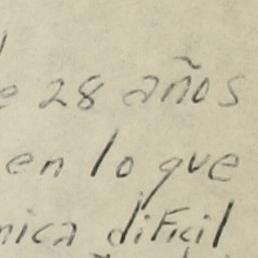 e 28 años
en lo que
nica dificil